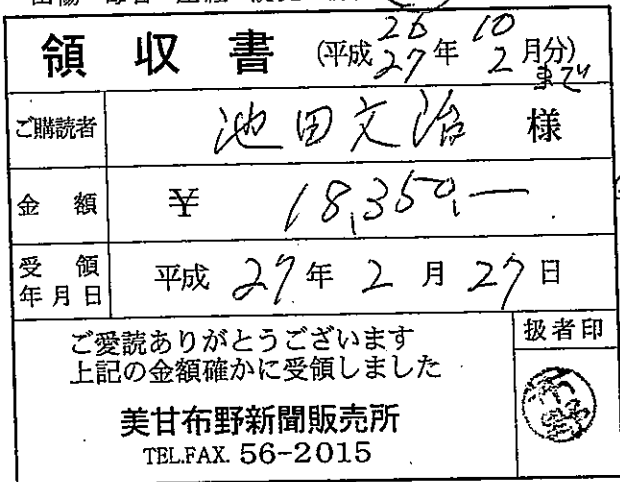 領収書 (平成 26 年 10
27 2 月分)
まで
ご購読者 池田文治 様
金額 ¥ 18,350,—
受領年月日 平成 27 年 2 月 27 日
ご愛読ありがとうございます 扱者印
上記の金額確かに受領しました
美甘布野新聞販売所 布野
TEL.FAX. 56-2015